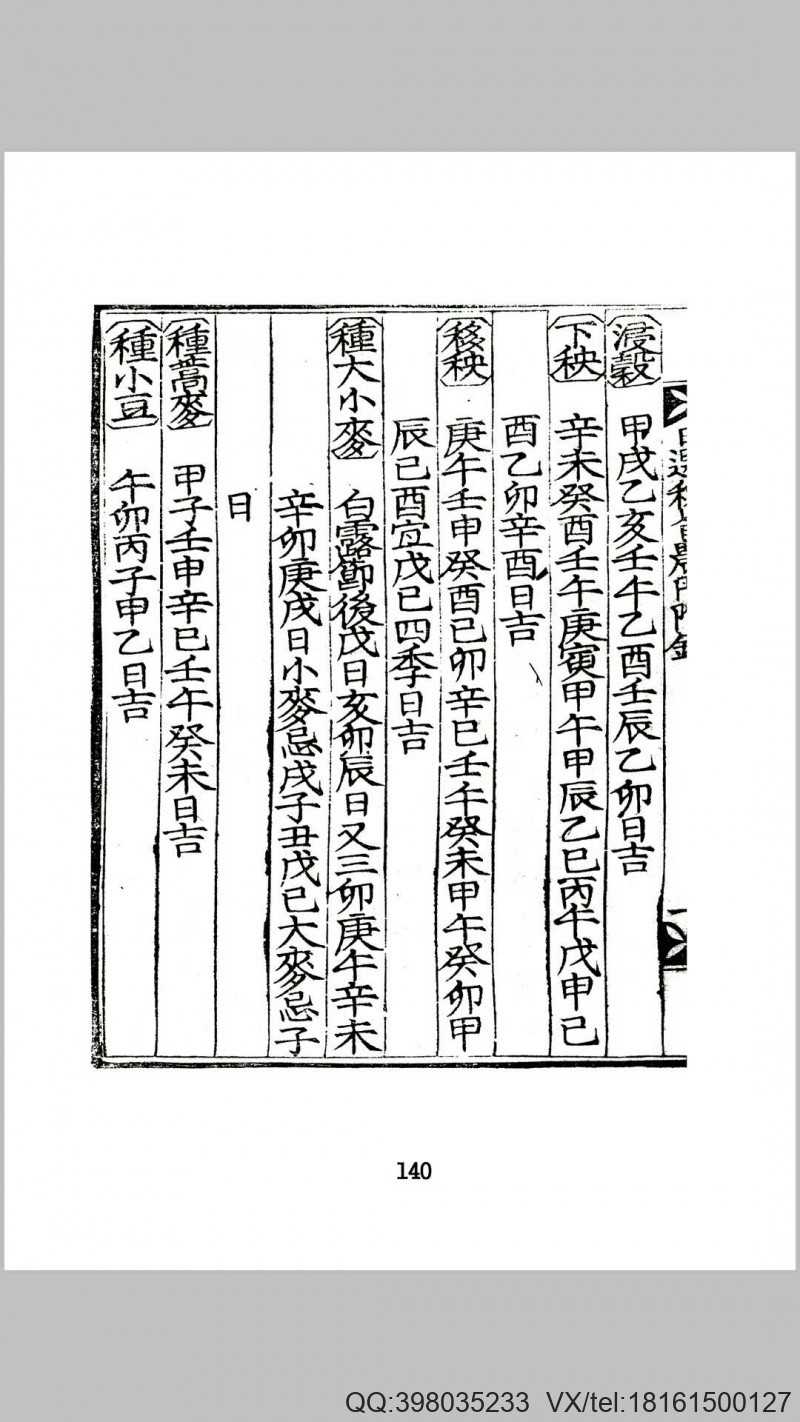 浸穀 甲戌乙亥壬午乙酉壬辰乙卯日吉
下秧 辛未癸酉壬午庚寅甲午甲辰乙巳丙午戊申己
酉乙卯辛酉日吉
移秧 庚午壬申癸酉己卯辛巳壬午癸未甲午癸卯甲
辰己酉宜戊己四季日吉
種大小麥 白露節後戊日亥卯辰日又三卯庚午辛未
辛卯庚戌日小麥忌戌子丑戊己大麥忌子
日
種蒿麥 甲子壬申辛巳壬午癸未日吉
種小豆 午卯丙子申乙日吉
140
QQ:398035233 VX/tel:18161500127